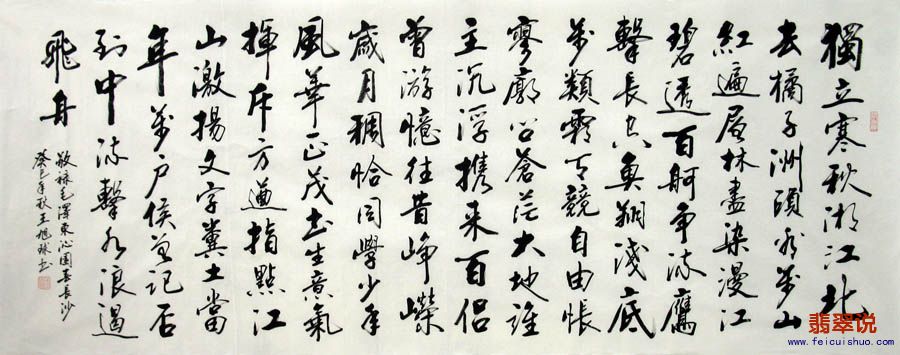 獨立寒秋湘江北
去橘子洲頭看萬山
紅遍層林盡染漫江
碧透百舸爭流鷹
擊長空魚翔淺底
萬類霜天競自由悵
寥廓問蒼茫大地誰
主沉浮攜來百侣
曾游憶往昔崢嶸
歲月稠恰同學少年
風華正茂書生意氣
揮斥方遒指點江
山激揚文字糞土當
年萬户侯曾記否
到中流擊水浪遏
飛舟
敬録毛澤東沁園春長沙
癸巳年秋王旭書
翡翠说
www.feicuishuo.com